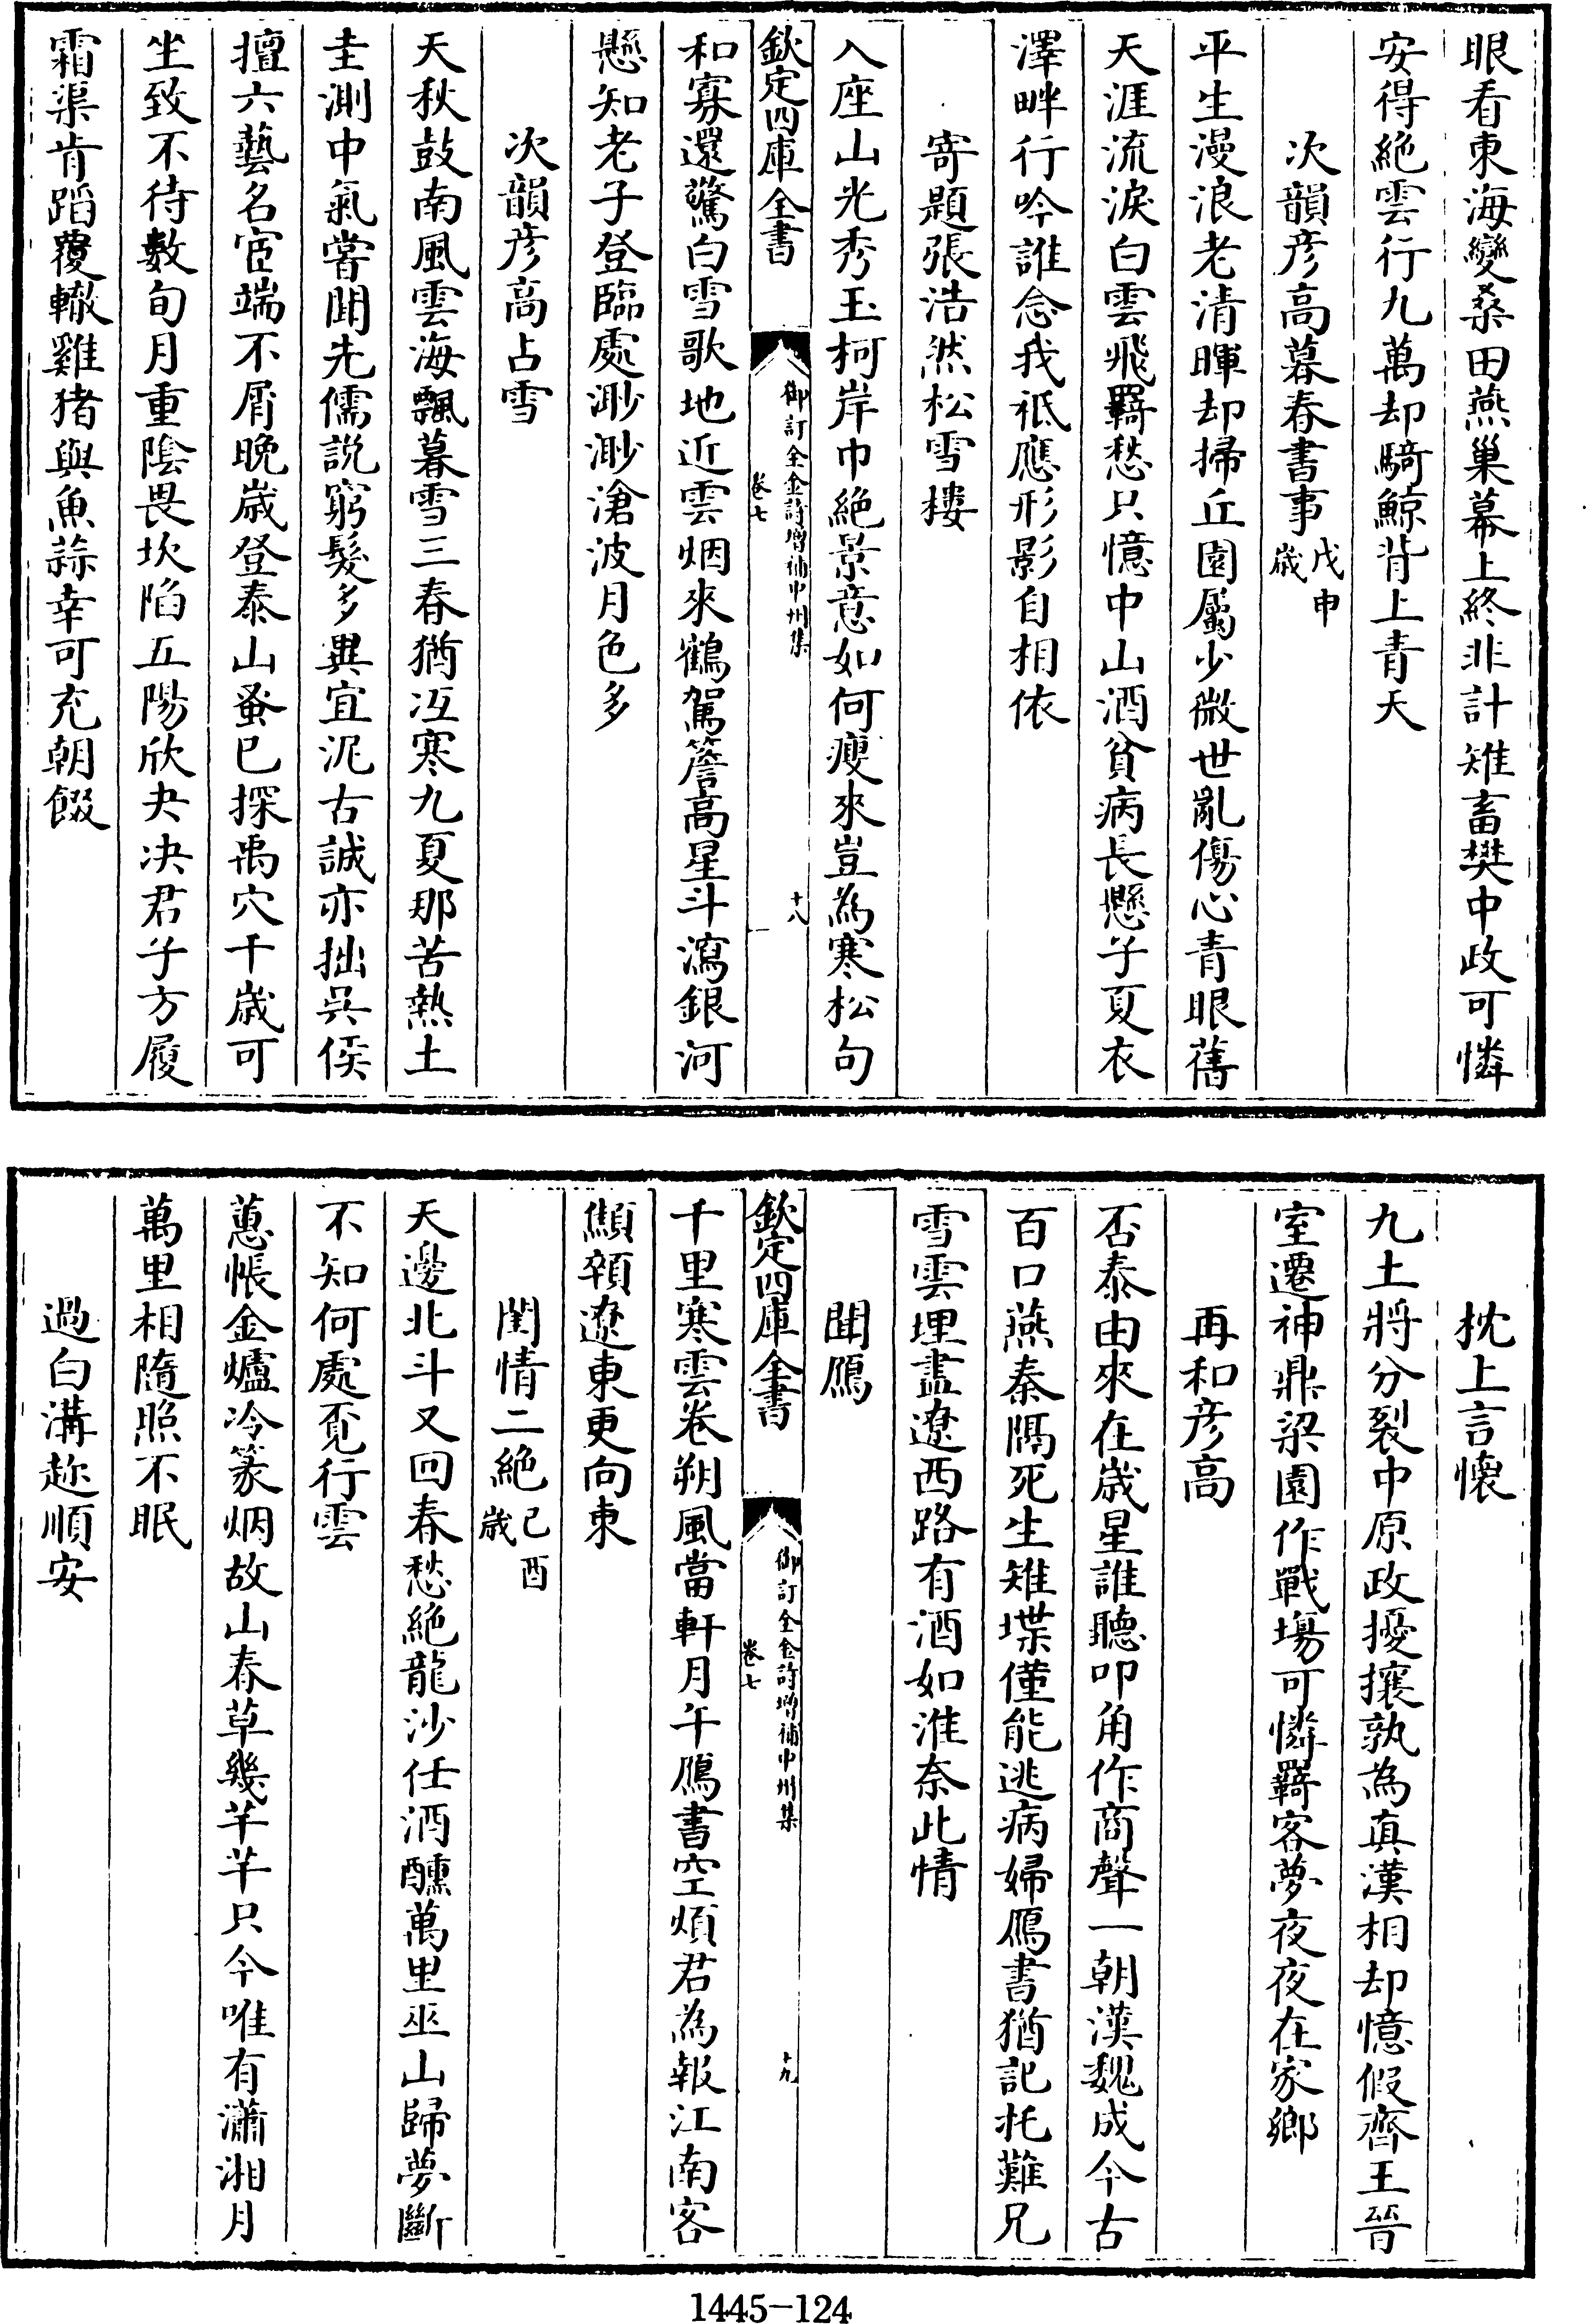 眼看東海變桑田燕巢幕上終非計雉畜樊中政可憐
安得絶雲行九萬却騎鯨背上青天
次韻彦高暮春書事戊申歲
平生漫浪老清暉却掃丘園屬少微世亂傷心青眼舊
天涯流淚白雲飛羇愁只憶中山酒貧病長懸子夏衣
澤畔行吟誰念我祗應形影自相依
寄題張浩然松雪樓
入座山光秀玉柯岸巾絶景意如何瘦來豈為寒松句
欽定四庫全書
御訂全金詩增補中州集
卷七
十八
和寡還驚白雪歌地近雲烟來鶴駕簷高星斗瀉銀河
懸知老子登臨處渺渺滄波月色多
次韻彦高占雪
天秋鼓南風雲海飄暮雪三春猶冱寒九夏那苦熱土
圭測中氣嘗聞先儒説窮髮多異宜泥古誠亦拙吳侯
擅六藝名宦端不屑晚歲登泰山蚤已探禹穴千歲可
坐致不待數旬月重陰畏坎陷五陽欣夬決君子方履
霜渠肯蹈覆轍雞猪與魚蒜幸可充朝餟
枕上言懷
九土將分裂中原政擾攘孰為真漢相却憶假齊王晉
室遷神鼎梁園作戰塲可憐羇客夢夜夜在家鄉
再和彦高
否泰由來在歲星誰聽叩角作商聲一朝漢魏成今古
百口燕秦隅死生雉堞僅能逃病婦鴈書猶記托難兄
雪雲埋盡遼西路有酒如淮奈此情
聞鴈
欽定四庫全書
御訂全金詩增補中州集
卷七
十九
千里寒雲卷朔風當軒月午鴈書空煩君為報江南客
顦顇遼東更向東
閨情二絶己酉歲
天邊北斗又回春愁絶龍沙任酒醺萬里巫山歸夢斷
不知何處覔行雲
蕙帳金爐冷篆烟故山春草幾芊芊只今唯有瀟湘月
萬里相隨照不眠
過白溝趂順安
1445-124